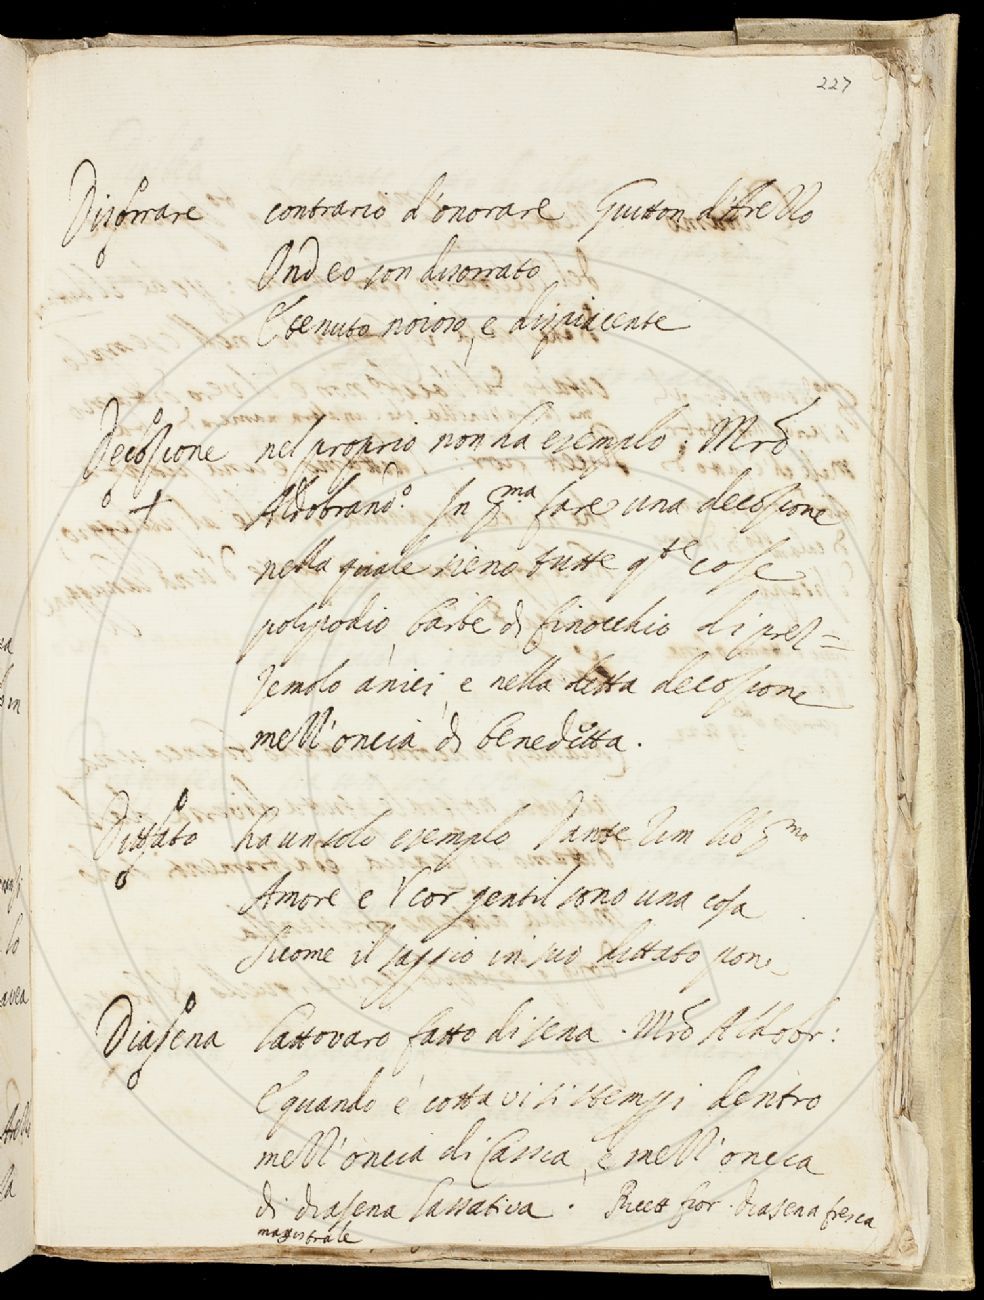 227
Disorrare contrario d'onorare Guitton d'Arezzo
Ond eo son disorrato
E tenuto noioso, e dispiacente
Decozione nel proprio non ha esempio: Mrō
Aldobrand.º In pma fare una decozione
nella quale sieno tutte qte cose
polipodio, barbe di finocchio di prez=
zemolo anici, e nella detta decozione
mezz'oncia di benedetta.
Dittato ha un solo esempio Dante
Amore e 'l cor gentil sono una cosa
Sicome il saggio in suo dittato pone
Diasena Lattovaro fatto di sena. Mrō Aldobr:
E quando è cotta vi si stempi dentro
mezz'oncia di Cassia, e mezz'oncia
di diasena lassativa. Ricett fior. diasena fresca
magistrale